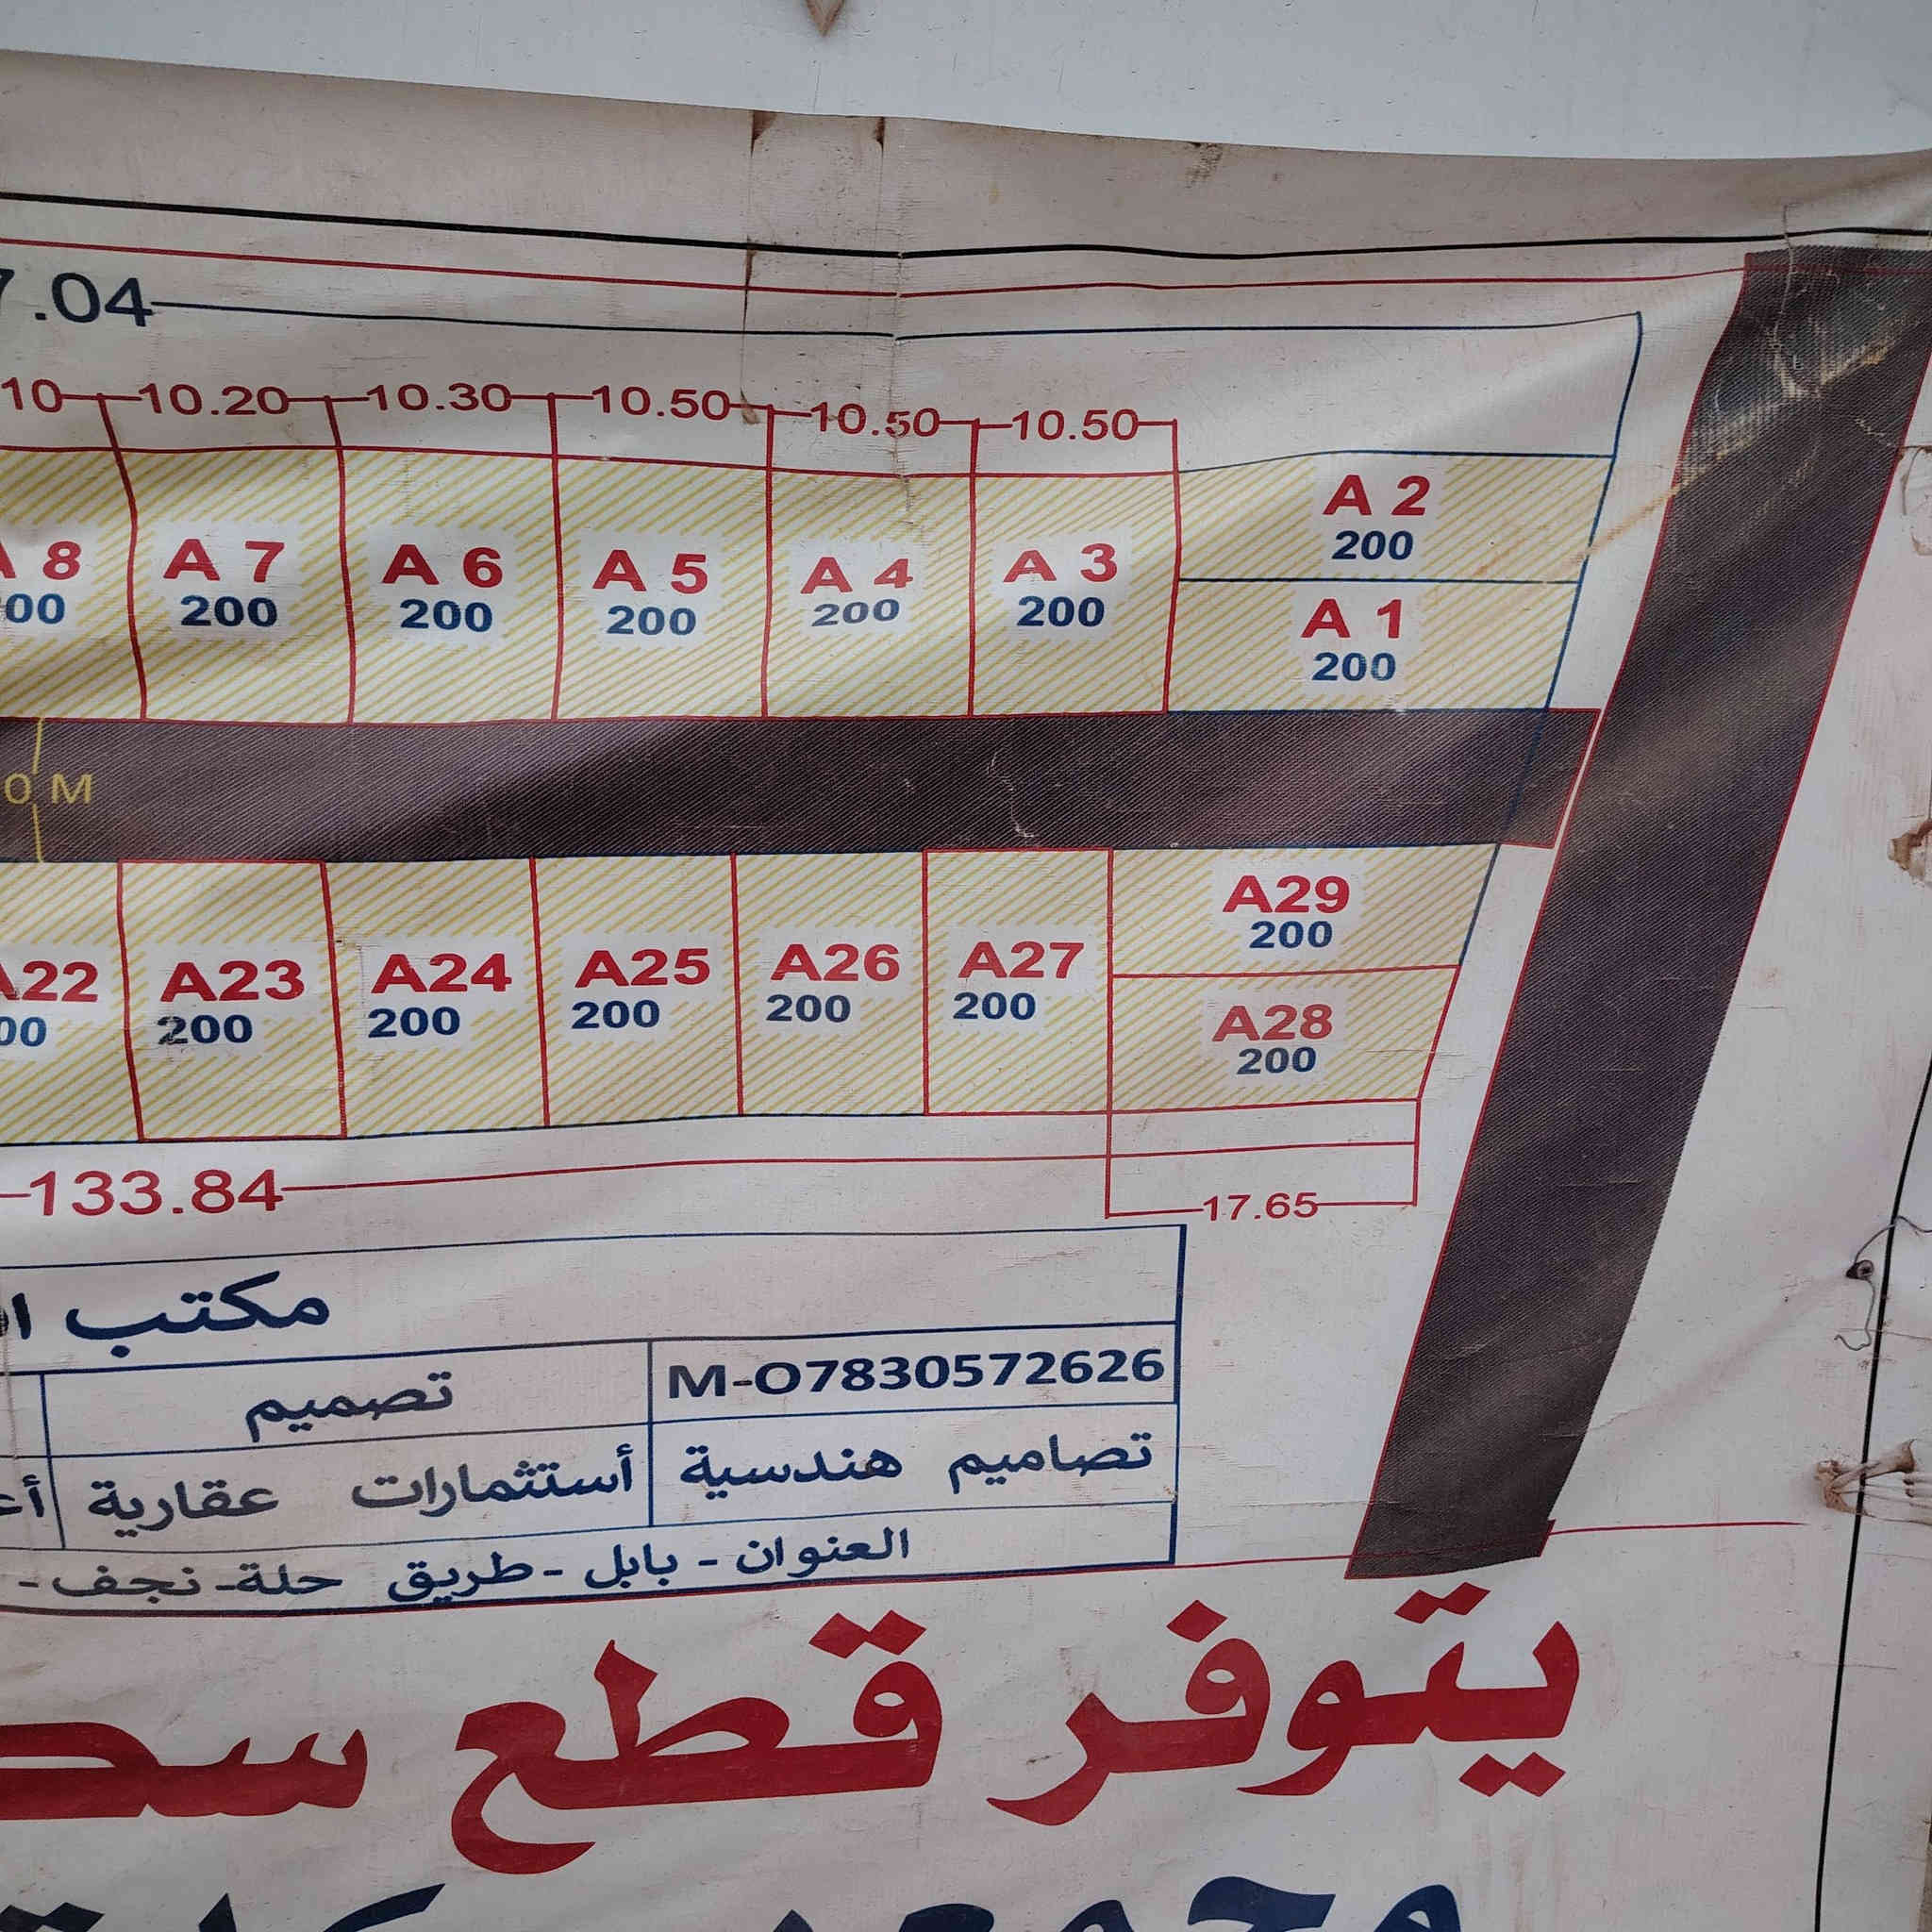 .04
10 10.20 10.30 10.50 10.50 10.50
A 2
200
A 8 A 7 A 6 A 5 A 4 A 3
00 200 200 200 200 200
A 1
200
0 M
A29
200
A22 A23 A24 A25 A26 A27
00 200 200 200 200 200
A28
200
133.84
17.65
مكتب
M-O7830572626 تصميم
تصاميم هندسية أستثمارات عقارية
العنوان - بابل - طريق حلة - نجف -
يتوفر قطع